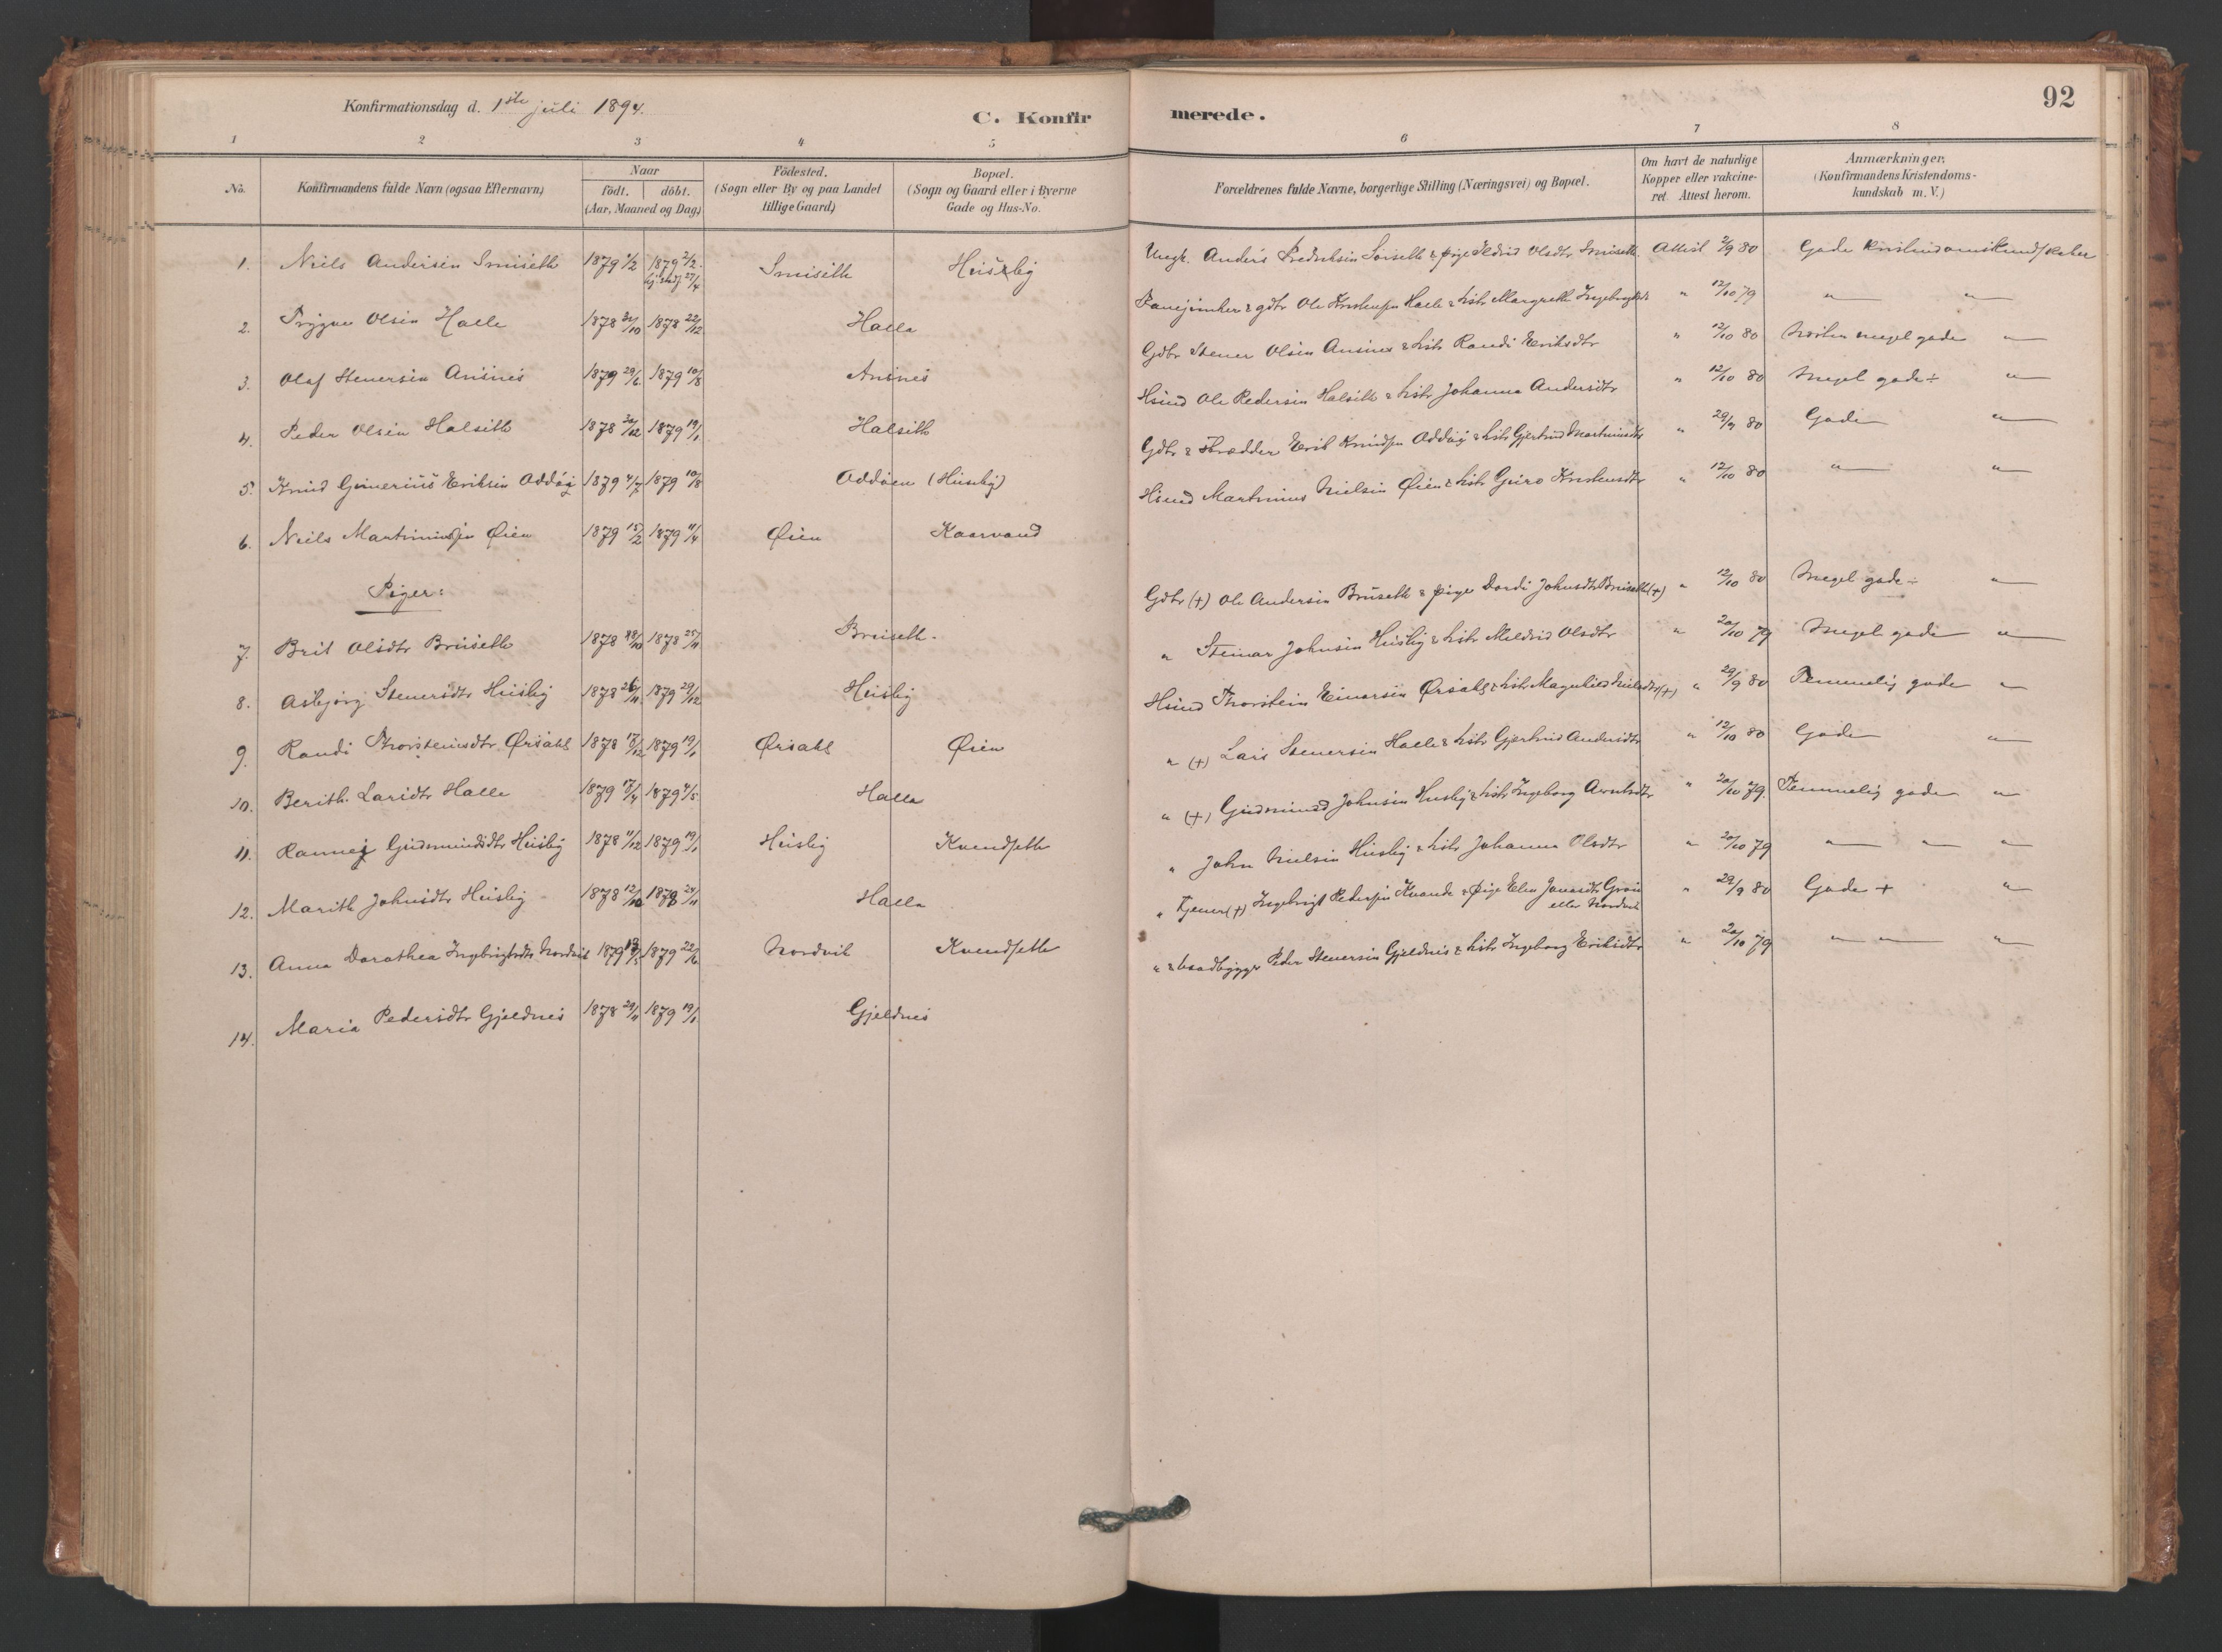 Konfirmationsdag d. 1ste juli 1894.
C. Konfir
merede.
92
1 2 3 4 5 6 7 8
No.
Konfirmandens fulde Navn (ogsaa Efternavn)
Naar
födt. döbt.
(Aar, Maaned og Dag)
Födested.
(Sogn eller By og paa Landet
tillige Gaard)
Bopæl.
(Sogn og Gaard eller i Byerne
Gade og Hus-No.
Forældrenes fulde Navne, borgerlige Stilling (Næringsvei) og Bopæl.
Om havt de naturlige
Kopper eller vakcine-
ret. Attest herom.
Anmærkninger.
(Konfirmandens Kristendoms-
kundskab m. V.)
1. Niels Andersen Smiseth 1879 1/2 1879 2/2 Smiseth Huseby Ungk. Anders Fredriksen Sörseth & pige Ildrid Olsdtr Smiseth. Attest 2/9 80 Gode Kristendomskundskaber
2. Trygve Olsen Halle 1878 31/10 1878 22/12 Halla gdbr Ole Kristensen Halle & hstr Margreth " 12/10 79 " "
3. Olaf Stenersen Ansnes 1879 29/6 1879 10/8 Ansnes Gdbr Stener Olsen Ansnes & hstr Randi Eriksdtr " 12/10 80 Næsten meget gode "
4. Peder Olsen Halseth 1878 30/12 1879 19/1 Halseth Hsmd Ole Pedersen Halseth & hstr Johanna Andersdtr " 12/10 80 Meget gode ÷ "
5. Knud Gunerius Eriksen Oddöy 1879 4/7 1879 10/8 Oddöen (Huseby) Gdbr & Skrædder Erik Knudsen Oddöy & hstr Gjertrud Martinusdtr " 29/9 80 Gode "
6. Niels Martinussen Øien 1879 15/2 1879 11/4 Øien Kaarvand Hsmd Martinus Nielsen Øien & hstr Guro Kristensdtr " 12/10 80 " "
Piger:
7. Brit Olsdtr Bruseth 1878 28/10 1878 25/11 Bruseth. Gdbr (+) Ole Andersen Bruseth & pige Dordi Johnsdtr Bruseth (+) " 12/10 80 Meget gode ÷ "
8. Asbjørg Stenersdtr Husby 1878 26/11 1879 29/12 Husby " Steinar Johnsen Husby & hstr Mildrid Olsdtr " 20/10 79 Meget gode "
9. Randi Thorsteinsdtr Ørsahl 1878 17/12 1879 19/1 Ørsahl Øien Hsmd Thorstein Einarsen Ørsahl & hstr Magnhild Nielsdtr (+) " 29/9 80 Temmelig gode "
10. Berith Larsdtr Halle 1879 17/4 1879 4/5 Halla " (+) Lars Stenersen Halle & hstr Gjertrud Andersdtr " 12/10 80 Gode "
11. Rannej Gudmundsdtr Husby 1878 11/12 1879 19/1 Husby Kvendseth " (+) Gudmund Johnsen Husby & hstr Ingeborg Arntsdtr " 20/10 79. Temmelig gode "
12. Marith Johnsdtr Husby 1878 12/10 1878 24/11 Halla " John Nielsen Husby & hstr Johanna Olsdtr " 20/10 79 " " "
13. Anna Dorothea Ingebrigtsdtr Nordvik 1879 13/5 1879 22/6 Nordvik Kvendseth " Tjener (+) Ingebrigt Pedersen Kvande & pige Elen Jonasdtr
eller Nordvik " 29/9 80 Gode + "
14. Maria Pedersdtr Gjeldnes 1878 29/11 1879 19/1 Gjeldnes " & baadbygger Peder Stenersen Gjeldnes & hstr Ingeborg Eriksdtr " 20/10 79 " " "